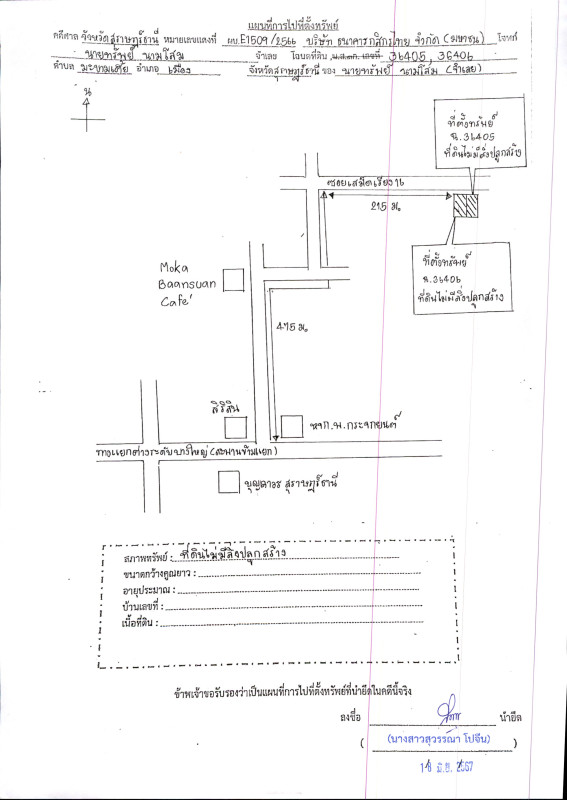 แผนที่การไปที่ตั้งทรัพย์
คดีศาล จังหวัดสุราษฎร์ธานี หมายเลขแดงที่ ผบ.E1509/2566 บริษัท ธนาคารกสิกรไทย จำกัด (มหาชน) โจทก์
นายทรัพย์ นามโสม จำเลย โฉนดที่ดิน น.ส.๓ก. เลขที่ 36405, 36406
ตำบล มะขามเตี้ย อำเภอ เมือง จังหวัดสุราษฎร์ธานี ของ นายทรัพย์ นามโสม (จำเลย)
น
ที่ตั้งทรัพย์
ฉ.36405
ที่ดินไม่มีสิ่งปลูกสร้าง
ซอยเสม็ดเรียง 16
215 ม.
ที่ตั้งทรัพย์
ฉ.36406
ที่ดินไม่มีสิ่งปลูกสร้าง
Moka
Baansuan
Café
475 ม.
สิริสิน
หจก.พ.กระจกยนต์
ทางแยกต่างระดับบางใหญ่ (สะพานข้ามแยก)
บุญถาวร สุราษฎร์ธานี
สภาพทรัพย์ : ที่ดินไม่มีสิ่งปลูกสร้าง
ขนาดกว้างคูณยาว :
อายุประมาณ :
บ้านเลขที่ :
เนื้อที่ดิน :
ข้าพเจ้าขอรับรองว่าเป็นแผนที่การไปที่ตั้งทรัพย์ที่นำยึดในคดีนี้จริง
ลงชื่อ นำยึด
(นางสาวสุวรรณา โปจีน)
18 มิ.ย. 2567